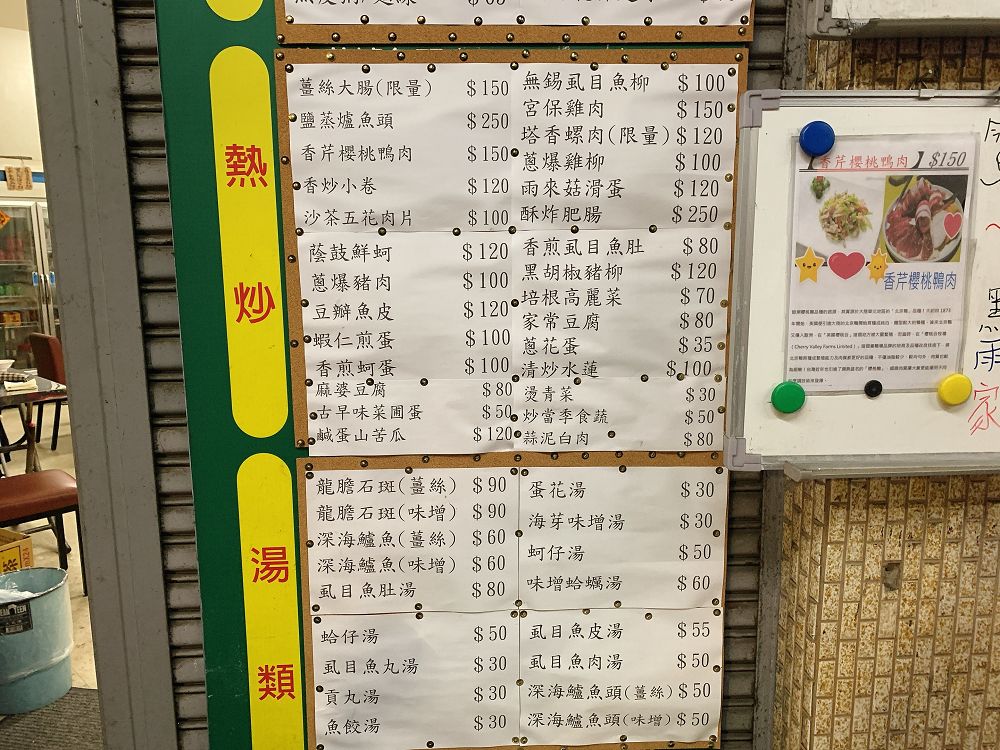 熱炒
薑絲大腸(限量) $150
鹽蒸爐魚頭 $250
香芹櫻桃鴨肉 $150
香炒小卷 $120
沙茶五花肉片 $100
蔭鼓鮮蚵 $120
蔥爆豬肉 $100
豆瓣魚皮 $120
蝦仁煎蛋 $100
香煎蚵蛋 $100
麻婆豆腐 $80
古早味菜圃蛋 $50
鹹蛋山苦瓜 $120
無錫虱目魚柳 $100
宮保雞肉 $150
塔香螺肉(限量) $120
蔥爆雞柳 $100
雨來菇滑蛋 $120
酥炸肥腸 $250
香煎虱目魚肚 $80
黑胡椒豬柳 $120
培根高麗菜 $70
家常豆腐 $80
蔥花蛋 $35
清炒水蓮 $100
燙青菜 $30
炒當季食蔬 $50
蒜泥白肉 $80
湯類
龍膽石斑(薑絲) $90
龍膽石斑(味增) $90
深海鱸魚(薑絲) $60
深海鱸魚(味增) $60
虱目魚肚湯 $80
蛤仔湯 $50
虱目魚丸湯 $30
貢丸湯 $30
魚餃湯 $30
蛋花湯 $30
海芽味增湯 $30
蚵仔湯 $50
味增蛤蠣湯 $60
虱目魚皮湯 $55
虱目魚肉湯 $50
深海鱸魚頭(薑絲) $50
深海鱸魚頭(味增) $50
【香芹櫻桃鴨肉】$150
香芹櫻桃鴨肉